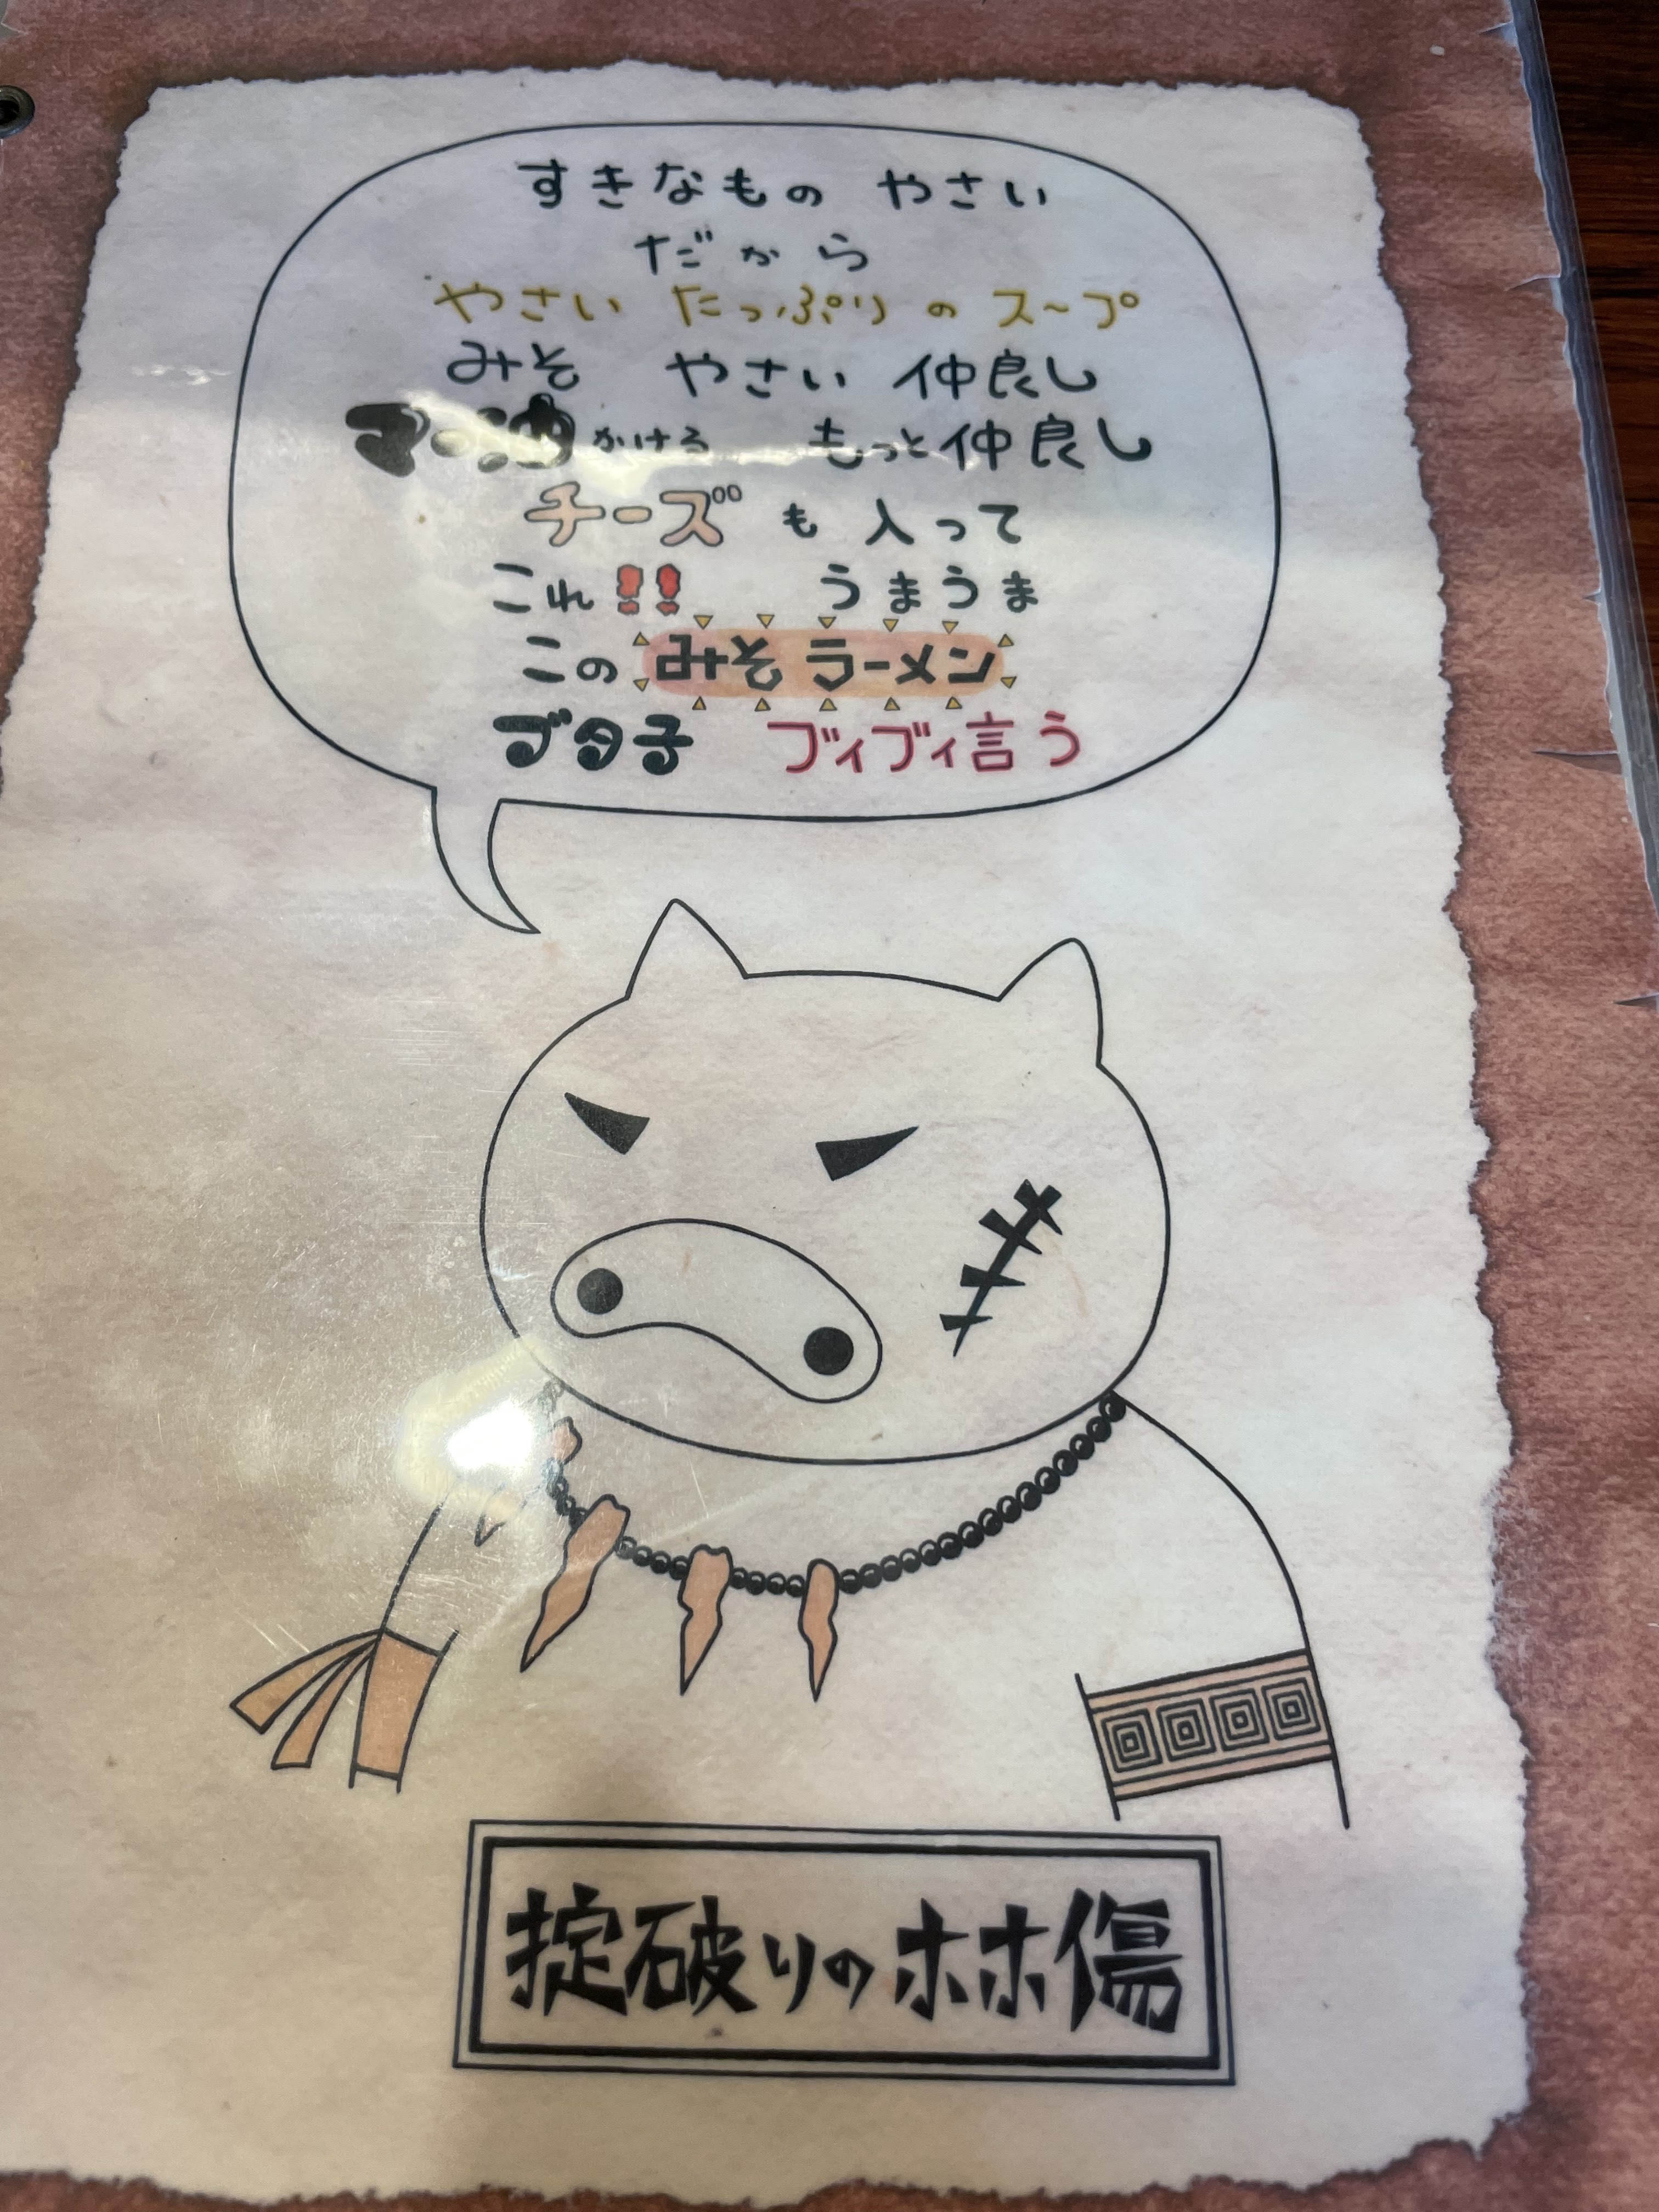 すきなもの やさい
だから
やさい たっぷり の スープ
みそ やさい 仲良し
マー油かける もっと仲良し
チーズ も 入って
これ!! うまうま
この みそ ラーメン
ブタ子 ブィブィ言う
掟破りのホホ傷